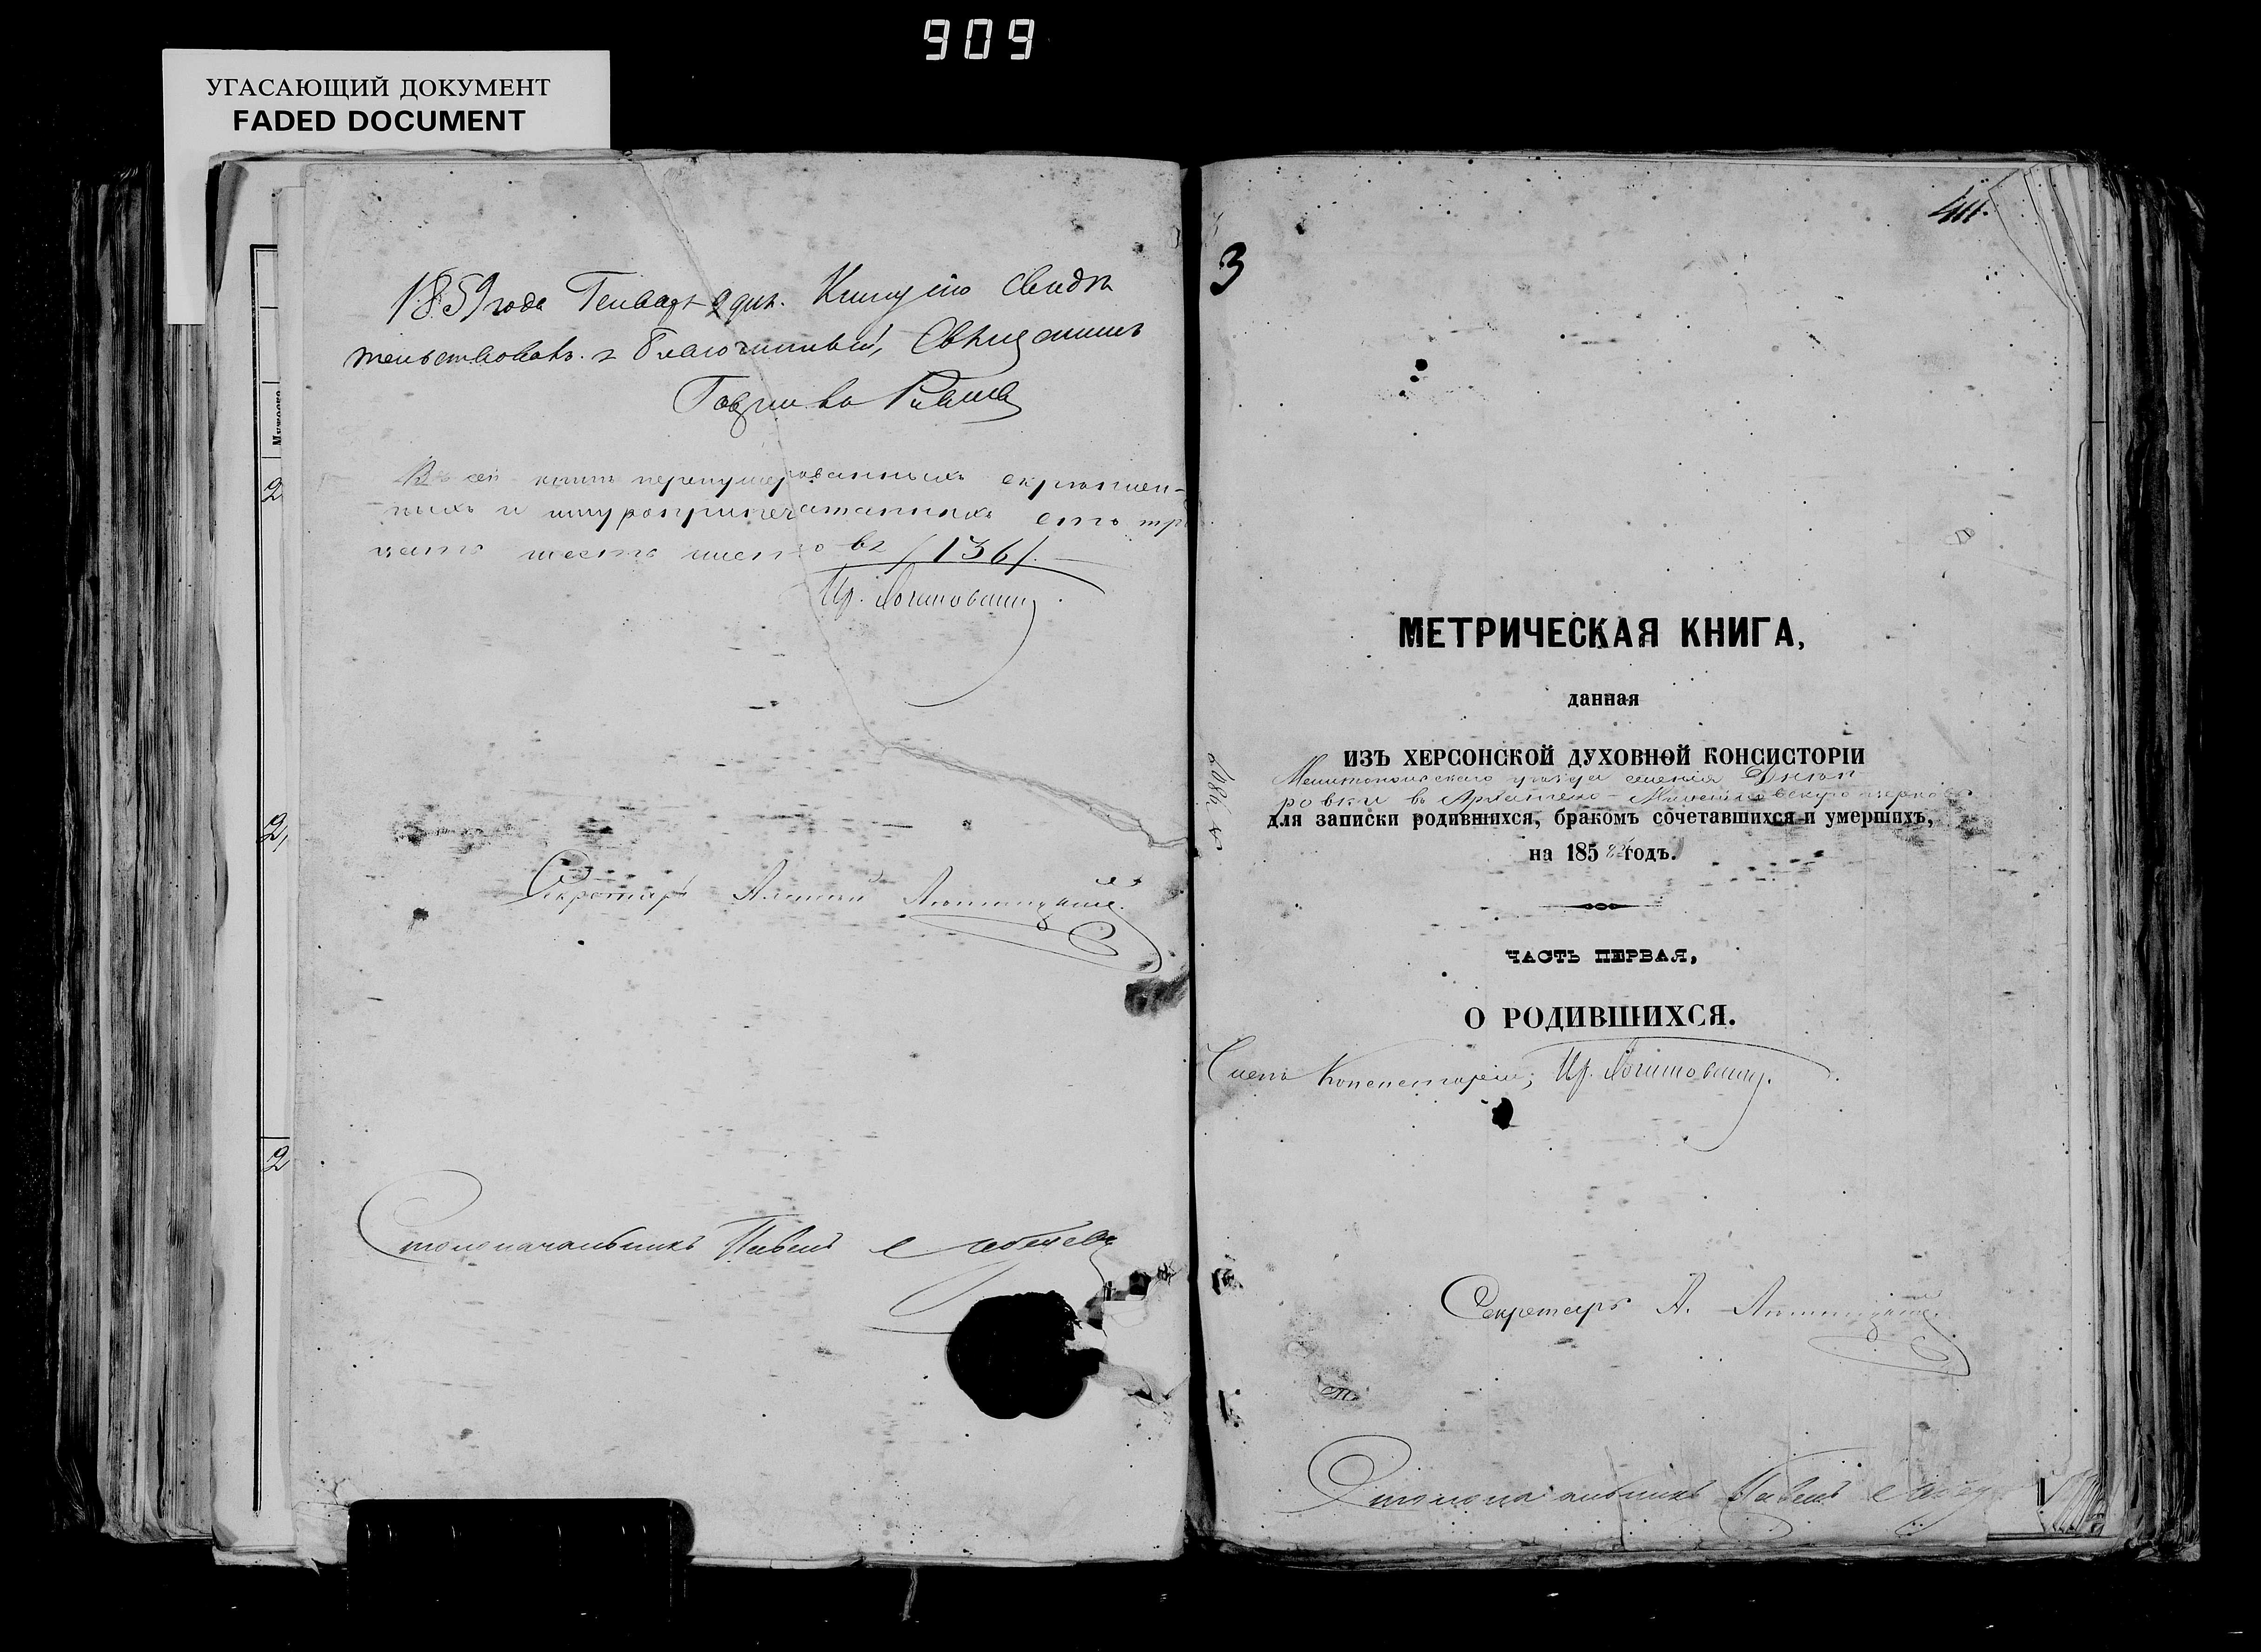 909
УГАСАЮЩИЙ ДОКУМЕНТ
FADED DOCUMENT
1859 года Генваря 9 дня. Книгу сію свидѣ
тельствовалъ Благочинный, Священникъ
Гавріилъ
Въ сей книгѣ перенумерованныхъ скрѣплен-
ныхъ и шнуроприпечатанныхъ сто три
цать шесть листовъ /136/.
Секретарь
Столоначальникъ Павелъ
2
2
2
3
411.
МЕТРИЧЕСКАЯ КНИГА,
данная
ИЗЪ ХЕРСОНСКОЙ ДУХОВНОЙ КОНСИСТОРІИ
Мелитопольскаго уѣзда селенія Днѣп
ровки въ Архангело-Михайловскую церковь
для записки родившихся, бракомъ сочетавшихся и умершихъ,
на 1858 годъ.
ЧАСТЬ ПЕРВАЯ,
О РОДИВШИХСЯ.
Членъ Консисторіи,
Секретарь А.
Столоначальникъ Павелъ